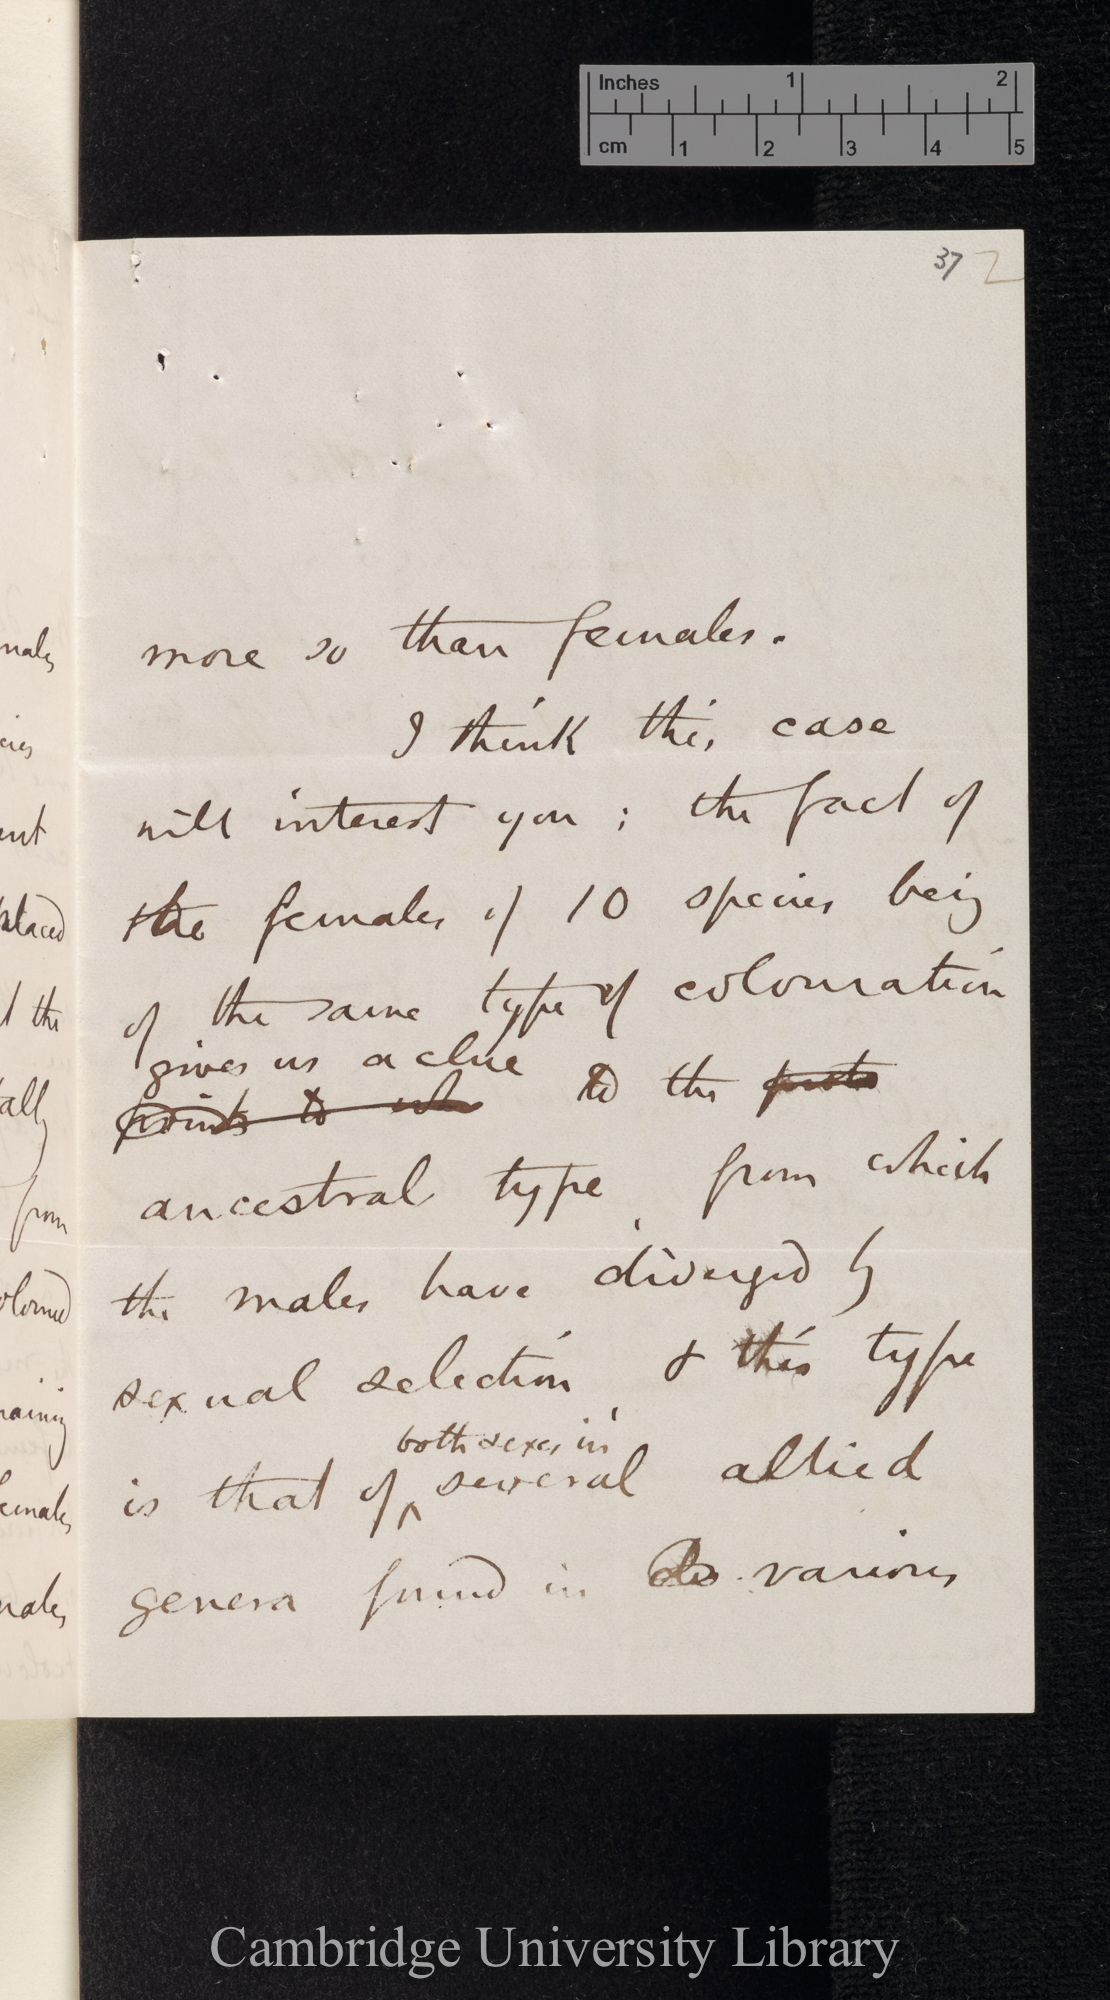 Inches 1 2
cm 1 2 3 4 5
37 2
more so than females.
I think this case
will interest you; the fact of
the females of 10 species being
of the same type of colouration
gives us a clue
points to to the
ancestral type from which
the males have diverged by
sexual selection & this type
both sexes in
is that of several allied
genera found in various
males
placed
the
from
females
males
Cambridge University Library